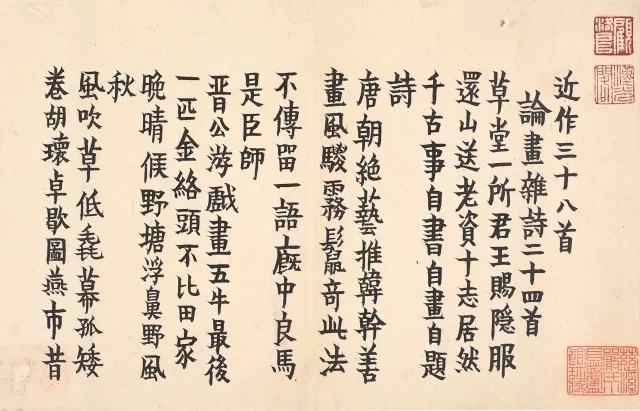 近作三十八首
論畫雜詩二十四首
草堂一所君王賜隱服
還山送老資十志居然
千古事自書自畫自題
詩
唐朝絶藝推韓幹善
畫風駿霧鬣奇此法
不傳留一語廄中良馬
是臣師
晋公游戲畫五牛最後
一匹金絡頭不比田家
晚晴候野塘浮鼻野風
秋
風吹草低毳幕孤矮
卷胡瓌卓歇圖燕市昔